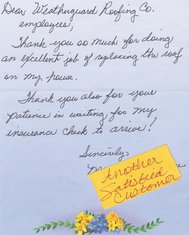 Dear Weatherguard Roofing Co.
employees,
Thank you so much for doing
an excellent job of replacing the roof
on my house.
Thank you also for your
patience in waiting for my
insurance check to arrive!
Sincerely,
Another
Satisfied
Customer